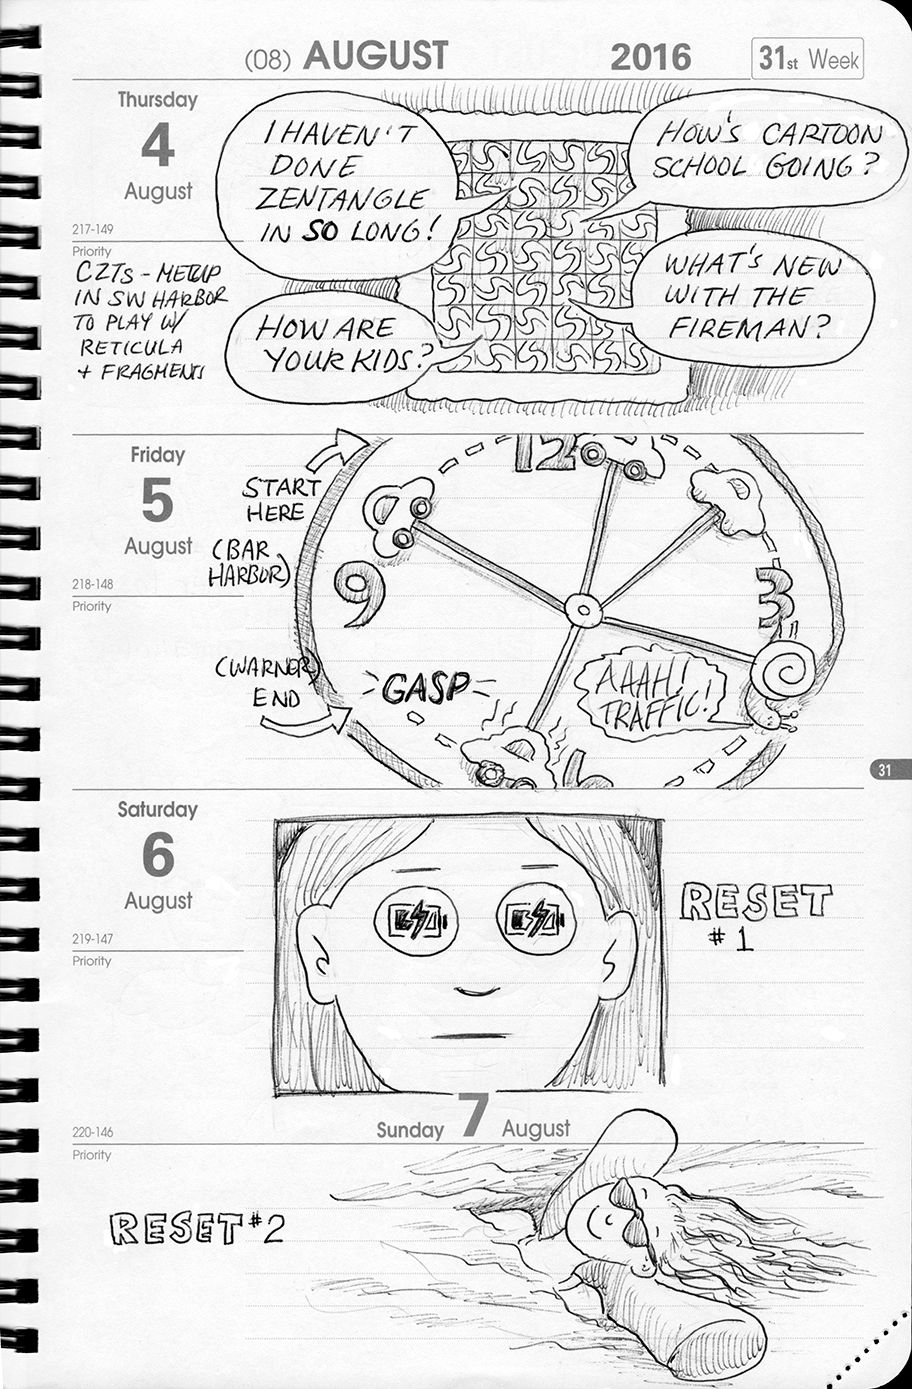 (08) AUGUST 2016 31st Week
Thursday
4
August
217-149
Priority
CZTs - MEETUP
IN SW HARBOR
TO PLAY W/
RETICULA
+ FRAGMENTS
I HAVEN'T
DONE
ZENTANGLE
IN SO LONG!
HOW'S CARTOON
SCHOOL GOING?
HOW ARE
YOUR KIDS?
WHAT'S NEW
WITH THE
FIREMAN?
Friday
5
August
218-148
Priority
START
HERE
(BAR
HARBOR)
(WARNER)
END
12
3
6
9
GASP
AAAH!
TRAFFIC!
31
Saturday
6
August
219-147
Priority
RESET
#1
Sunday 7 August
220-146
Priority
RESET #2